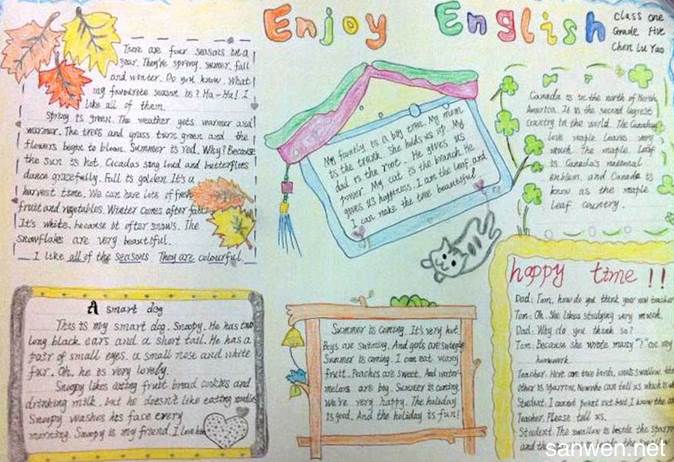 Enjoy English
Class one
Grade Five
Chen Lu Yao
There are four seasons in a
year. They're spring, summer, fall
and winter. Do you know. What
my favourite season is? Ha-Ha! I
like all of them.
Spring is green. The weather gets warmer and
warmer. The trees and grass turns green and the
flowers begin to bloom. Summer is red, Why? Because
the sun is hot. Cicadas sing loud and butterflies
dance gracefully. Fall is golden. It's a
harvest time. We can have lots of fresh
fruit and vegetables. Winter comes after fall.
It's white, because it often snows. The
snowflakes are very beautiful.
I like all of the seasons They are colourful.
My family is a big tree. My mum
is the trunk. She holds us up. My
dad is the root. He gives us
power. My cat is the branch. He
gives us happiness. I am the leaf and
I can make the tree beautiful
Canada is in the north of North
America. It is the second largest
country in the world. The Canadian
love maple leaves very
much the maple leaf
is Canada's national
emblem, and Canada is
know as the maple
leaf country.
happy time !!
Dad: Tom, how do you think your new teacher
Tom: Oh. She likes studying very much.
Dad: Why do you think so?
Tom: Because she wrote many "?" on my
homework.
Teacher: Here are two birds, one is swallow, the
other is sparrow. Now who can tell us which is
Student: I cannot point out but I know the
Teacher: Please tell us.
Student: The swallow is beside the sparrow
and the sparrow is beside the swallow
A smart dog
This is my smart dog. Snoopy. He has two
long black ears and a short tail. He has a
pair of small eyes. a small nose and white
fur. Oh, he is very lovely.
Snoopy likes eating fruit bread cookies and
drinking milk. but he doesn't like eating noodles
Snoopy washes his face every
morning. Snoopy is my friend. I love him
Summer is coming. It's very hot.
Boys are swimming. And girls are
Summer is coming. I can eat many
fruit. Peaches are sweet. And water-
melons are big. Summer is coming.
We're very happy. The holiday
is good. And the holiday is fun!
sanwen.net